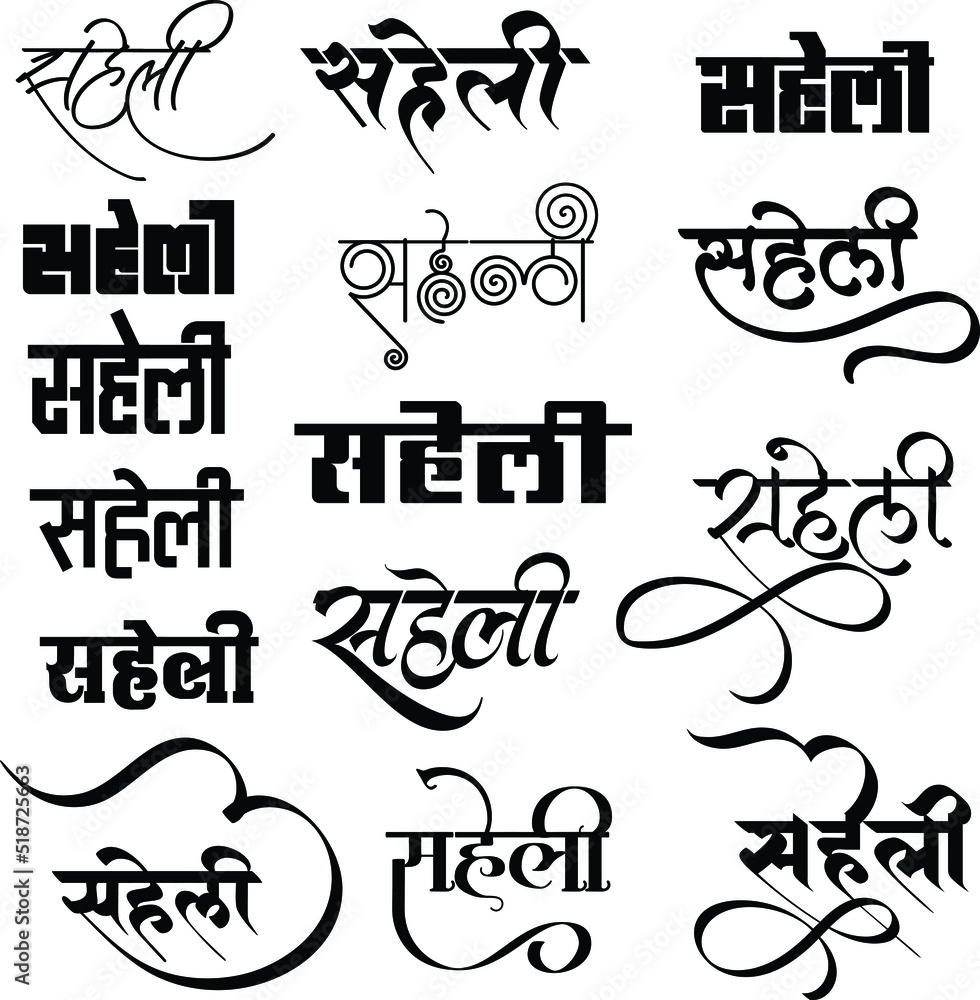 सहेली सहेली सहेली
सहेली सहेली सहेली
सहेली
सहेली
सहेली
सहेली
सहेली
सहेली
सहेली सहेली सहेली
Adobe Stock | #518725663